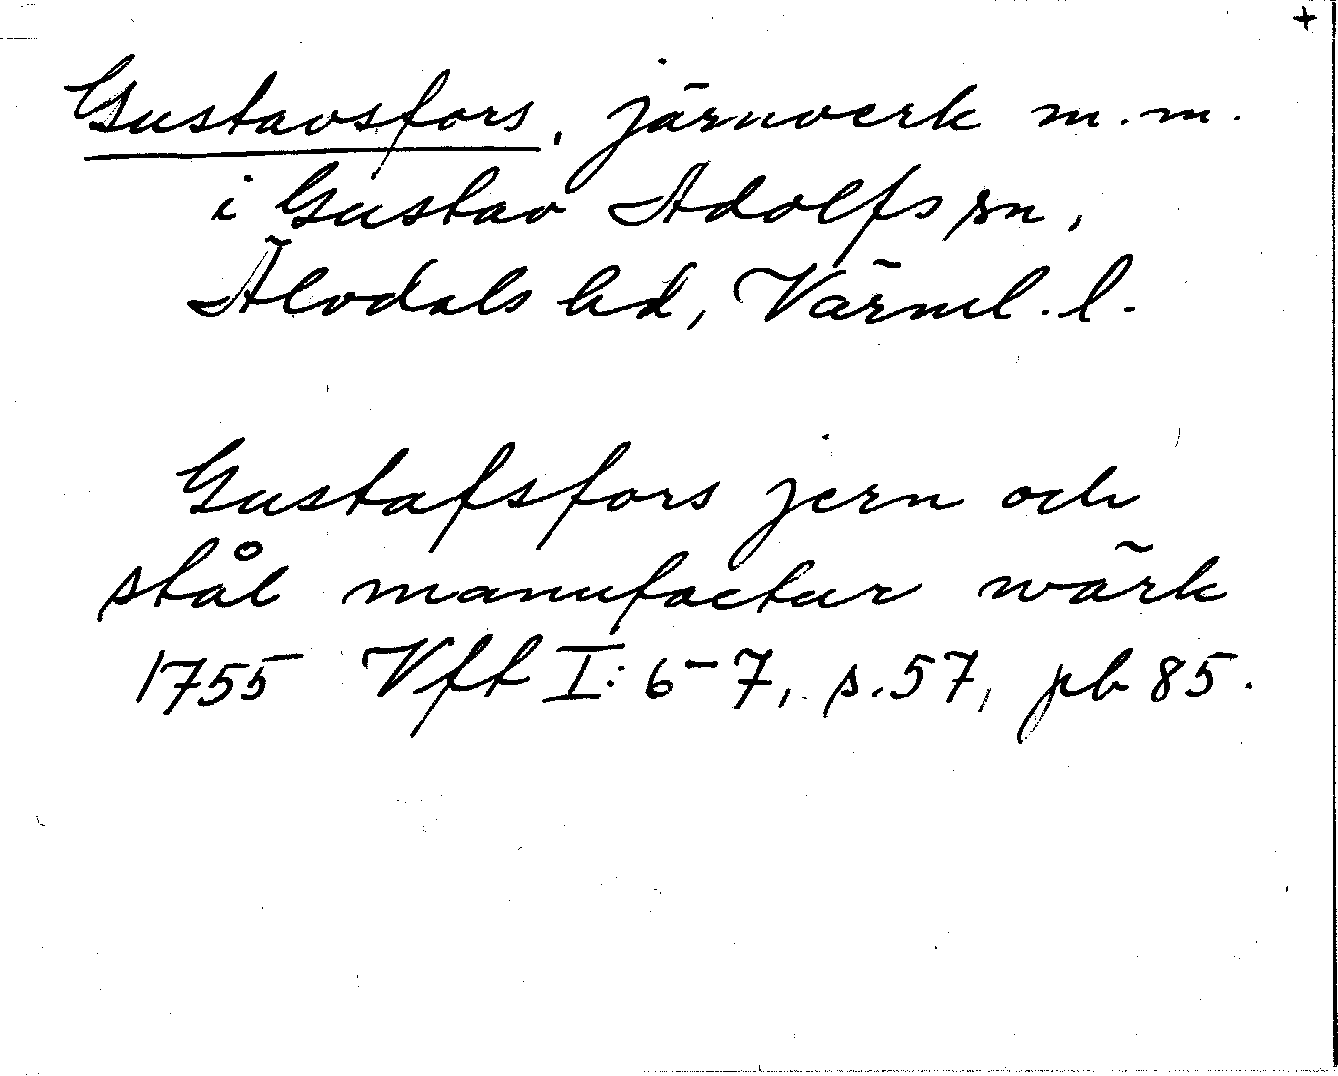 +
Gustavsfors, järnverk m.m.
i Gustav Adolfs sn,
Älvdals hd, Värml. l.
Gustafsfors jern och
stål manufactur wärk
1755 Vft I: 6-7, s. 57, pb 85.